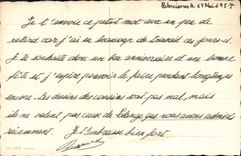 Je t'envoie ce petit mot avec un peu de
retard car j'ai eu beaucoup de travail ces jours-ci.
Je te souhaite donc un bon anniversaire et une bonne
fête et j'espère pouvoir le faire pendant longtemps
encore. Les dessins des cousins sont pas mal, mais
ils ne valent pas ceux de que nous avons admirés
récemment. Je t'embrasse bien fort